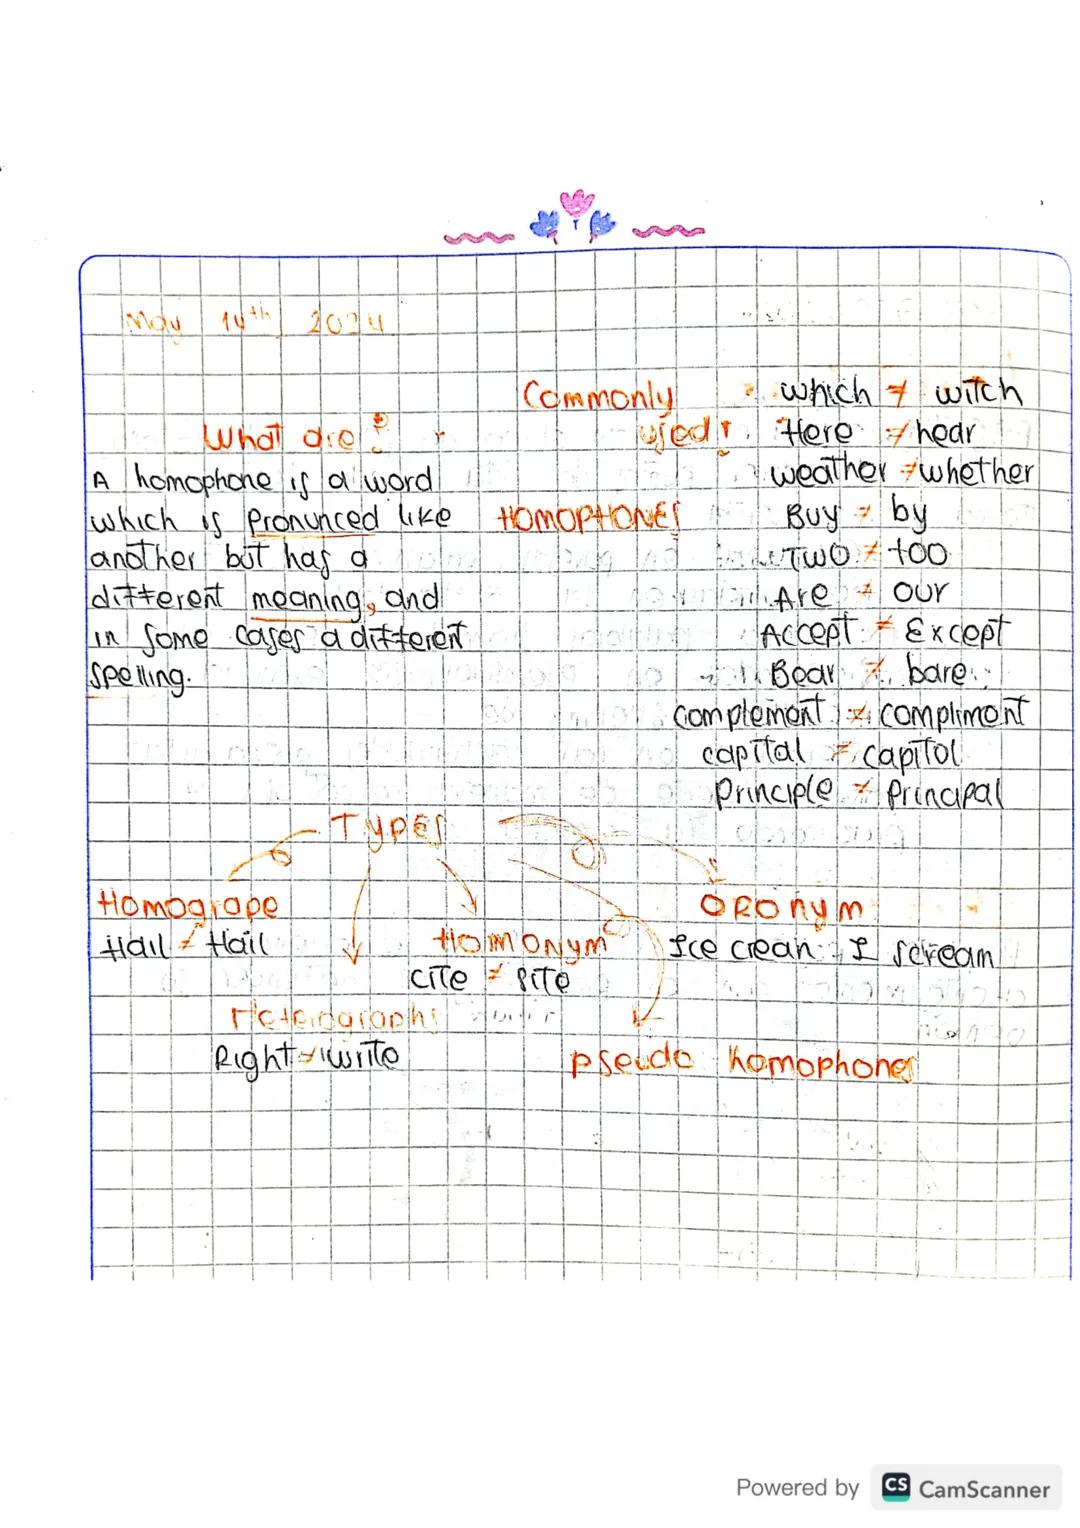 May 14th 2024
What are?
A homophone is a word
which is pronunced like
another but has a
different meaning, and
in some cases a different
spelling.
HOMOPHONES
Commonly
used:
which ≠ witch
Here ≠ hear
weather ≠ whether
Buy ≠ by
Two ≠ too
Are ≠ our
Accept ≠ Except
Bear ≠ bare
complement ≠ compliment
capital ≠ capitol
Principle ≠ Principal
TYPES
Homogrape
Hail ≠ Hail
Heterographs
Right ≠ write
Homonym
cite ≠ site
pseudo homophones
Oronym
Ice crean ≠ I scream
Powered by CS CamScanner